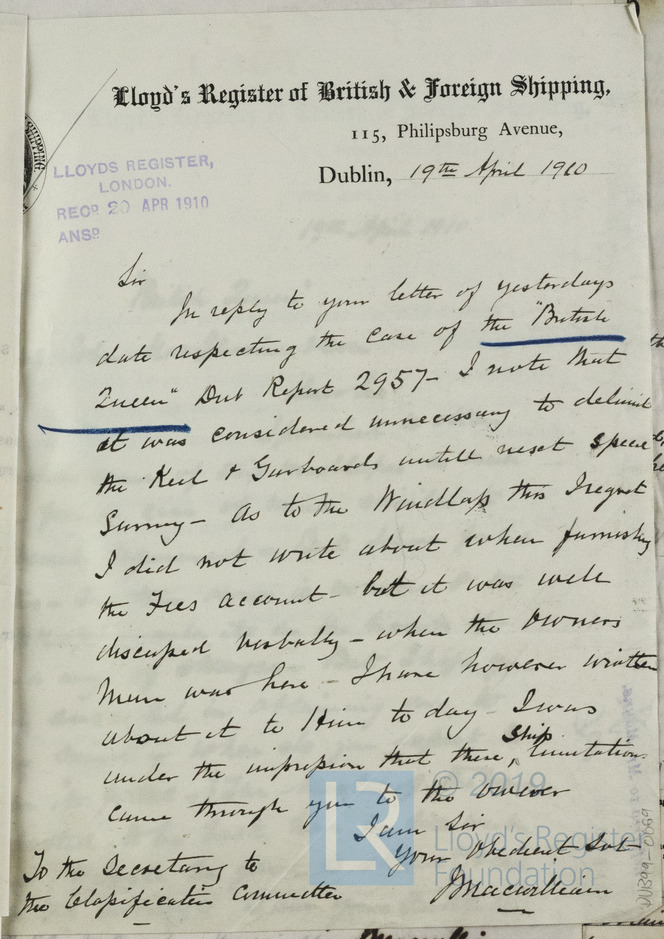 Lloyd's Register of British & Foreign Shipping,
115, Philipsburg Avenue,
Dublin, 19th April 1910
LLOYDS REGISTER,
LONDON.
RECD 20 APR 1910
ANSD
Sir
In reply to your letter of yesterdays
date respecting the case of the "British
Queen" Dub Report 2957 - I note that
it was considered unnecessary to
the Keel & Garboards untill next special
Survey - As to the Windlass this I regret
I did not write about when furnishing
the Fees account - but it was well
discussed verbally - when the Owners
Mem was here - I have however written
about it to Him to day - I was
under the impression that these ship limitations
came through you to the owner
I am Sir
Your Obedient Svt
JMacwilliam
To the Secretary to
the Classification Committee
© 2019
Lloyd's Register
Foundation
LR